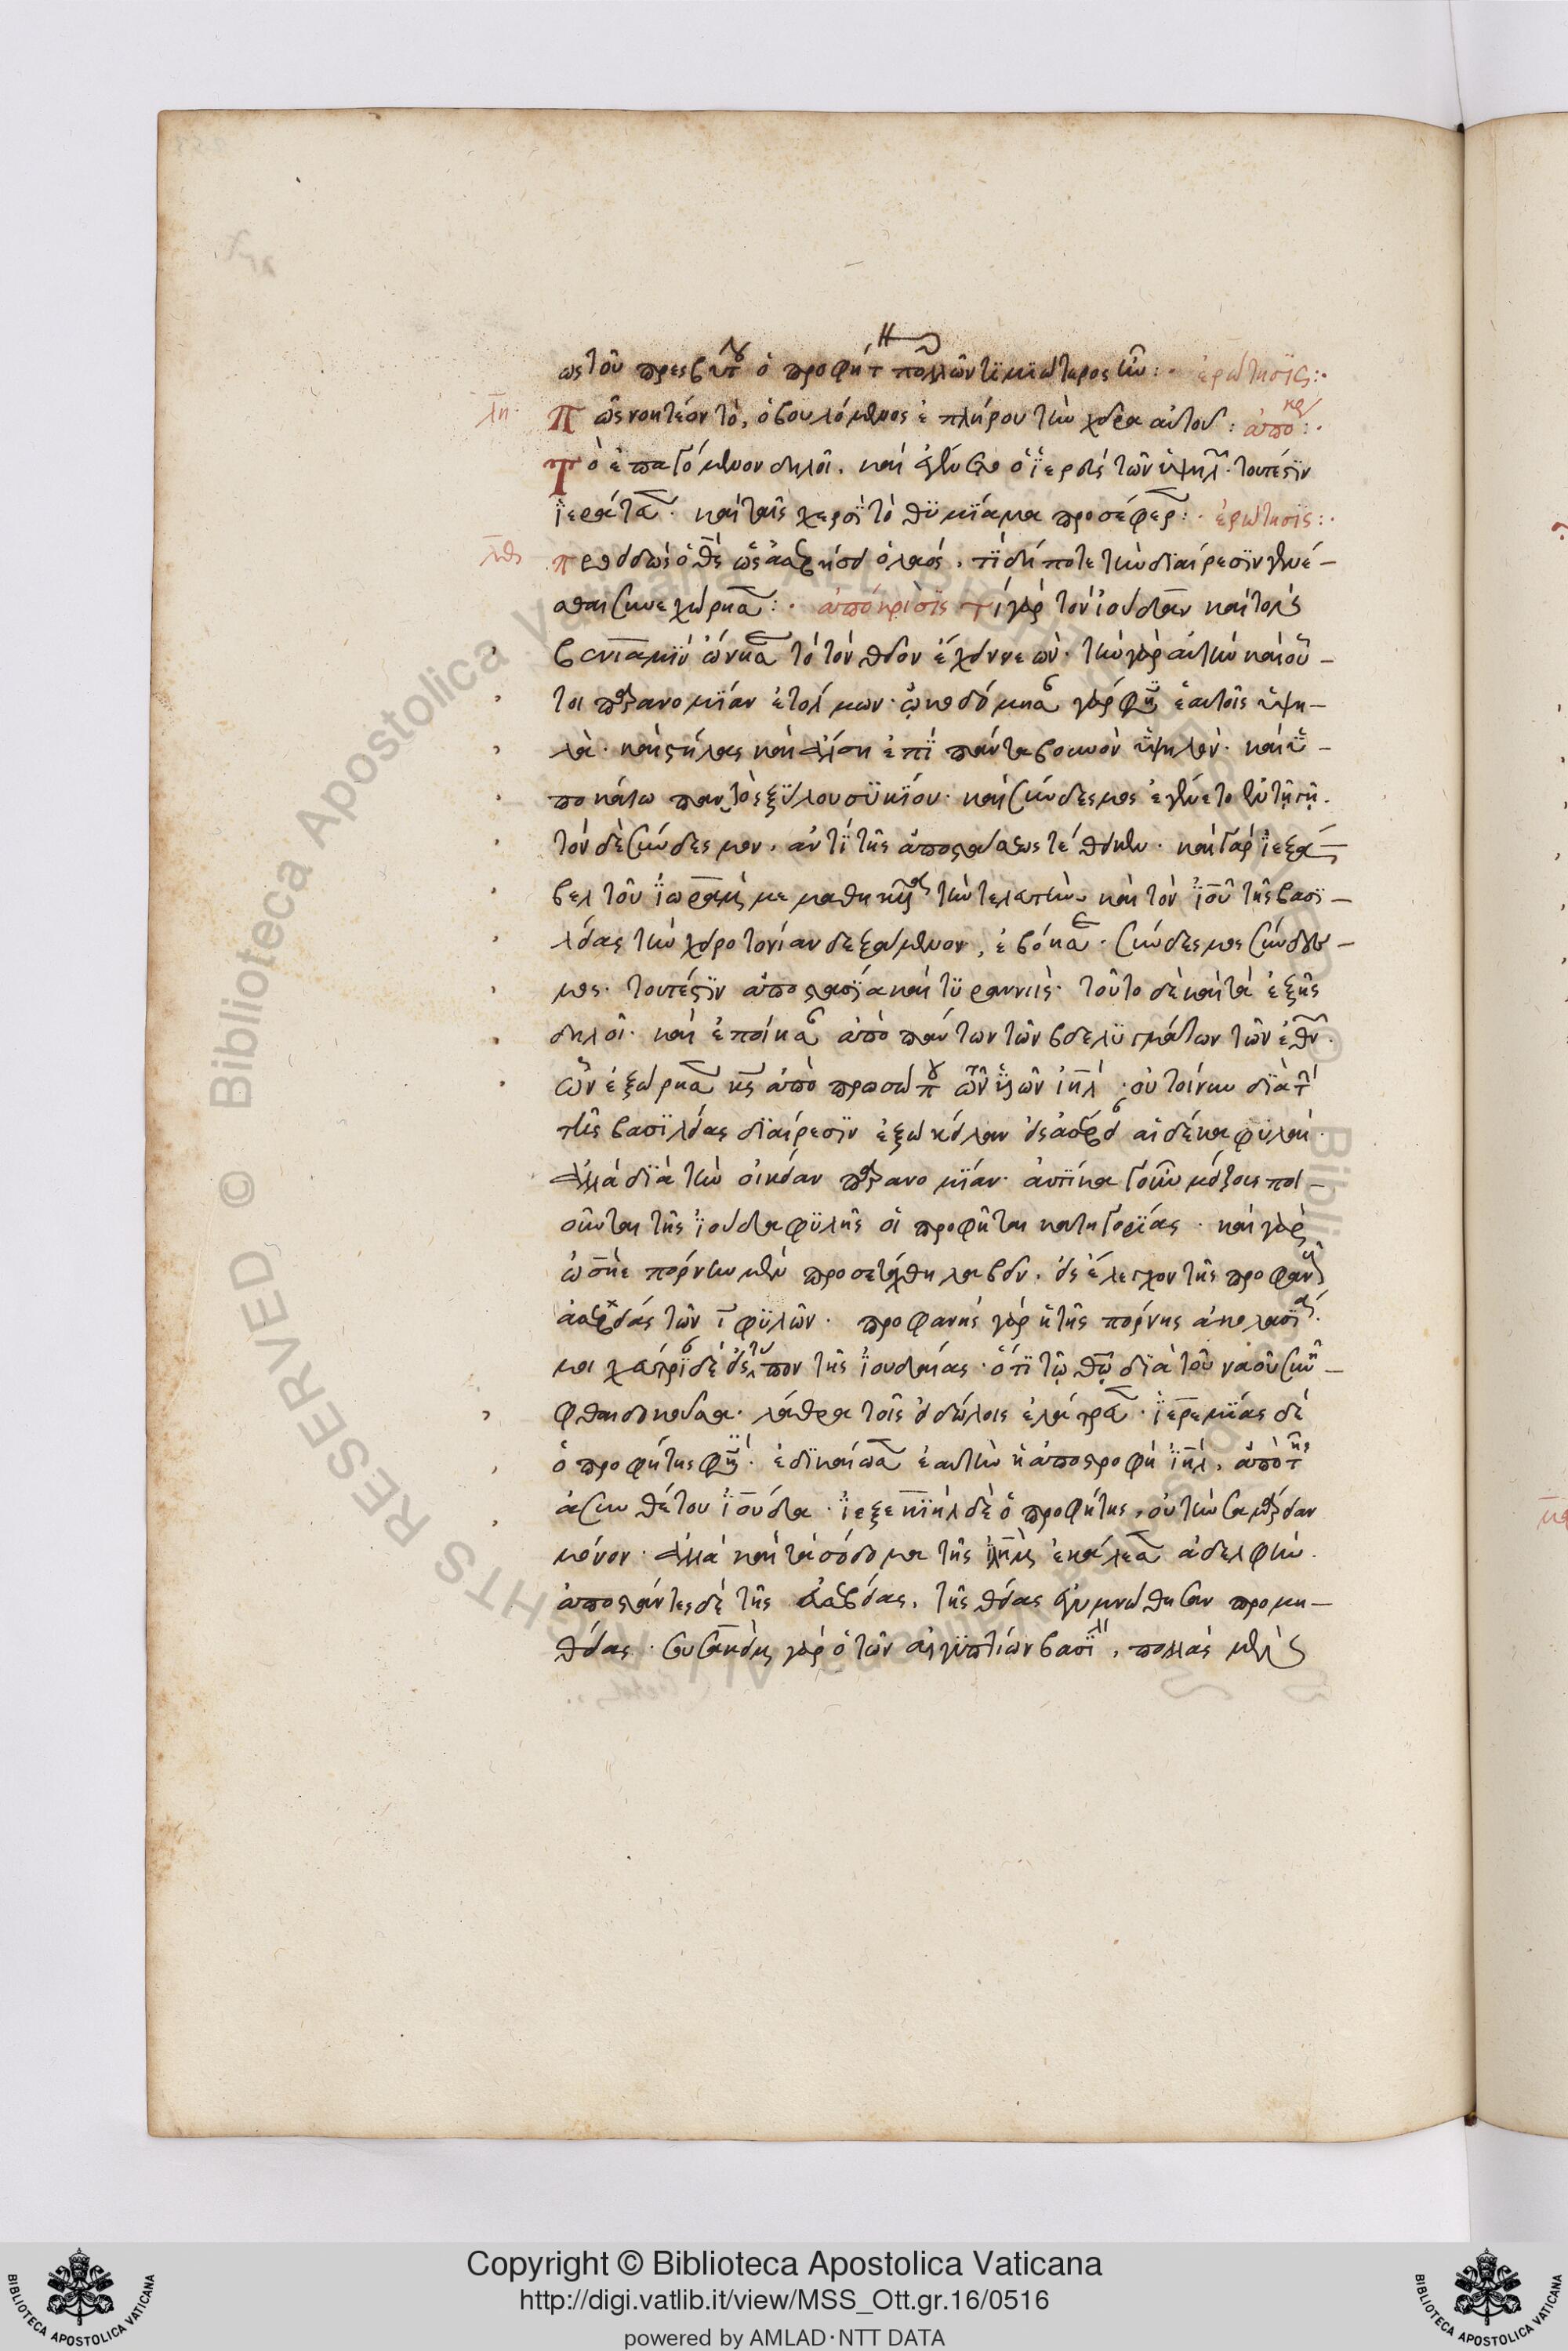 ως τοῦ πρεσβυτου ὁ προφήτ πολλῶν τιμιώτερος ἦν : ἐρώτησις :
λη Πῶς νοητέον τὸ, ὁ βουλόμενος ἐπλήρου τὴν χεῖρα αὐτοῦ : ἀπόκρ :
Τὸ ἐπαγόμενον δηλοῖ. καὶ ἐγένετο ὁ ἱερεὺς τῶν ὑψηλ. τουτέστιν
ἱεράτευσε. καὶ ταῖς χερσὶ τὸ θυμίαμα προσέφερε : ἐρώτησις :
λθ προειδὼς ὁ θς ὡς ἀσεβήσει ὁ λαός, τί δήποτε τὴν διαίρεσιν γενέ-
σθαι συνεχώρησε : ἀπόκρισις τί γὰρ τὸν ἰούδαν καὶ τοὺς
βενιαμὶν ὤνησε τὸ τὸν θεῖον ἔχειν νεών. τὴν γὰρ αὐτὴν καὶ οὗ-
τοι παρανομίαν ἐτόλμων. ᾠκοδόμησαν γάρ φησιν ἑαυτοῖς ὑψη-
λὰ. καὶ στήλας καὶ ἄλση ἐπὶ πάντα βουνὸν ὑψηλόν. καὶ ὑ-
ποκάτω παντὸς ξύλου συκίου. καὶ σύνδεσμος ἐγένετο ἐν τῇ γῇ.
τὸν δὲ σύνδεσμον, ἀντὶ τῆς ἀποστάσεως τέθεικεν. καὶ γὰρ ἰεζά-
βελ τοῦ ἰωρὰμ μεμαθηκυῖα τὴν τελευτὴν. καὶ τὸν ἰοῦ τῆς βασι-
λείας τὴν χειροτονίαν δεξάμενον, ἐβόησε. σύνδεσμος σύνδε-
σμος. τουτέστιν ἀποστασία καὶ τυραννὶς. τοῦτο δὲ καὶ τὰ ἑξῆς
δηλοῖ. καὶ ἐποίησαν ἀπὸ πάντων τῶν βδελυγμάτων τῶν ἐθν.
ὧν ἐξώρισε κς ἀπὸ προσώπου τῶν υἱῶν ἰηλ. οὐ τοίνυν διὰ τ
τῆς βασιλείας διαίρεσιν ἐξώκειλαν εἰς ἀσέβειαν αἱ δέκα φυλαί.
ἀλλὰ διὰ τὴν οἰκείαν παρανομίαν. αὐτίκα γοῦν μείζους ποι-
οῦνται τῆς ἰούδα φυλῆς οἱ προφῆται κατηγορίας. καὶ γὰρ
ὠσηὲ πόρνην μὲν προσετάχθη λαβεῖν, εἰς ἔλεγχον τῆς προφανοῦς
ἀσεβείας τῶν ι φυλῶν. προφανὴς γὰρ ἡ τῆς πόρνης ἀκολασία.
μοιχαλίδα δὲ εἰς τύπον τῆς ἰουδαίας. ὅτι τῷ θῷ διὰ τοῦ ναοῦ συνῆ-
φθαι δοκοῦσα. λάθρα τοῖς εἰδώλοις ἐλάτρευσε. ἱερεμίας δὲ
ὁ προφήτης φησὶ. ἐδικαίωσεν ἑαυτὴν ἡ ἀποστροφὴ ἰηλ, ἀπὸ τῆς
ἀσυνθέτου ἰούδα. ἰεζεκιὴλ δὲ ὁ προφήτης, οὐ τὴν σαμάρειαν
μόνον. ἀλλὰ καὶ τὰ σόδομα τῆς ἱλημ ἐκάλεσεν ἀδελφὴν.
ἀποστάντες δὲ τῆς εὐσεβείας, τῆς θείας ἐγυμνώθησαν προμη-
θείας. σουσακεὶμ γὰρ ὁ τῶν αἰγυπτίων βασιλ, πολλὰς μυριάδας
Copyright © Biblioteca Apostolica Vaticana
http://digi.vatlib.it/view/MSS_Ott.gr.16/0516
powered by AMLAD·NTT DATA